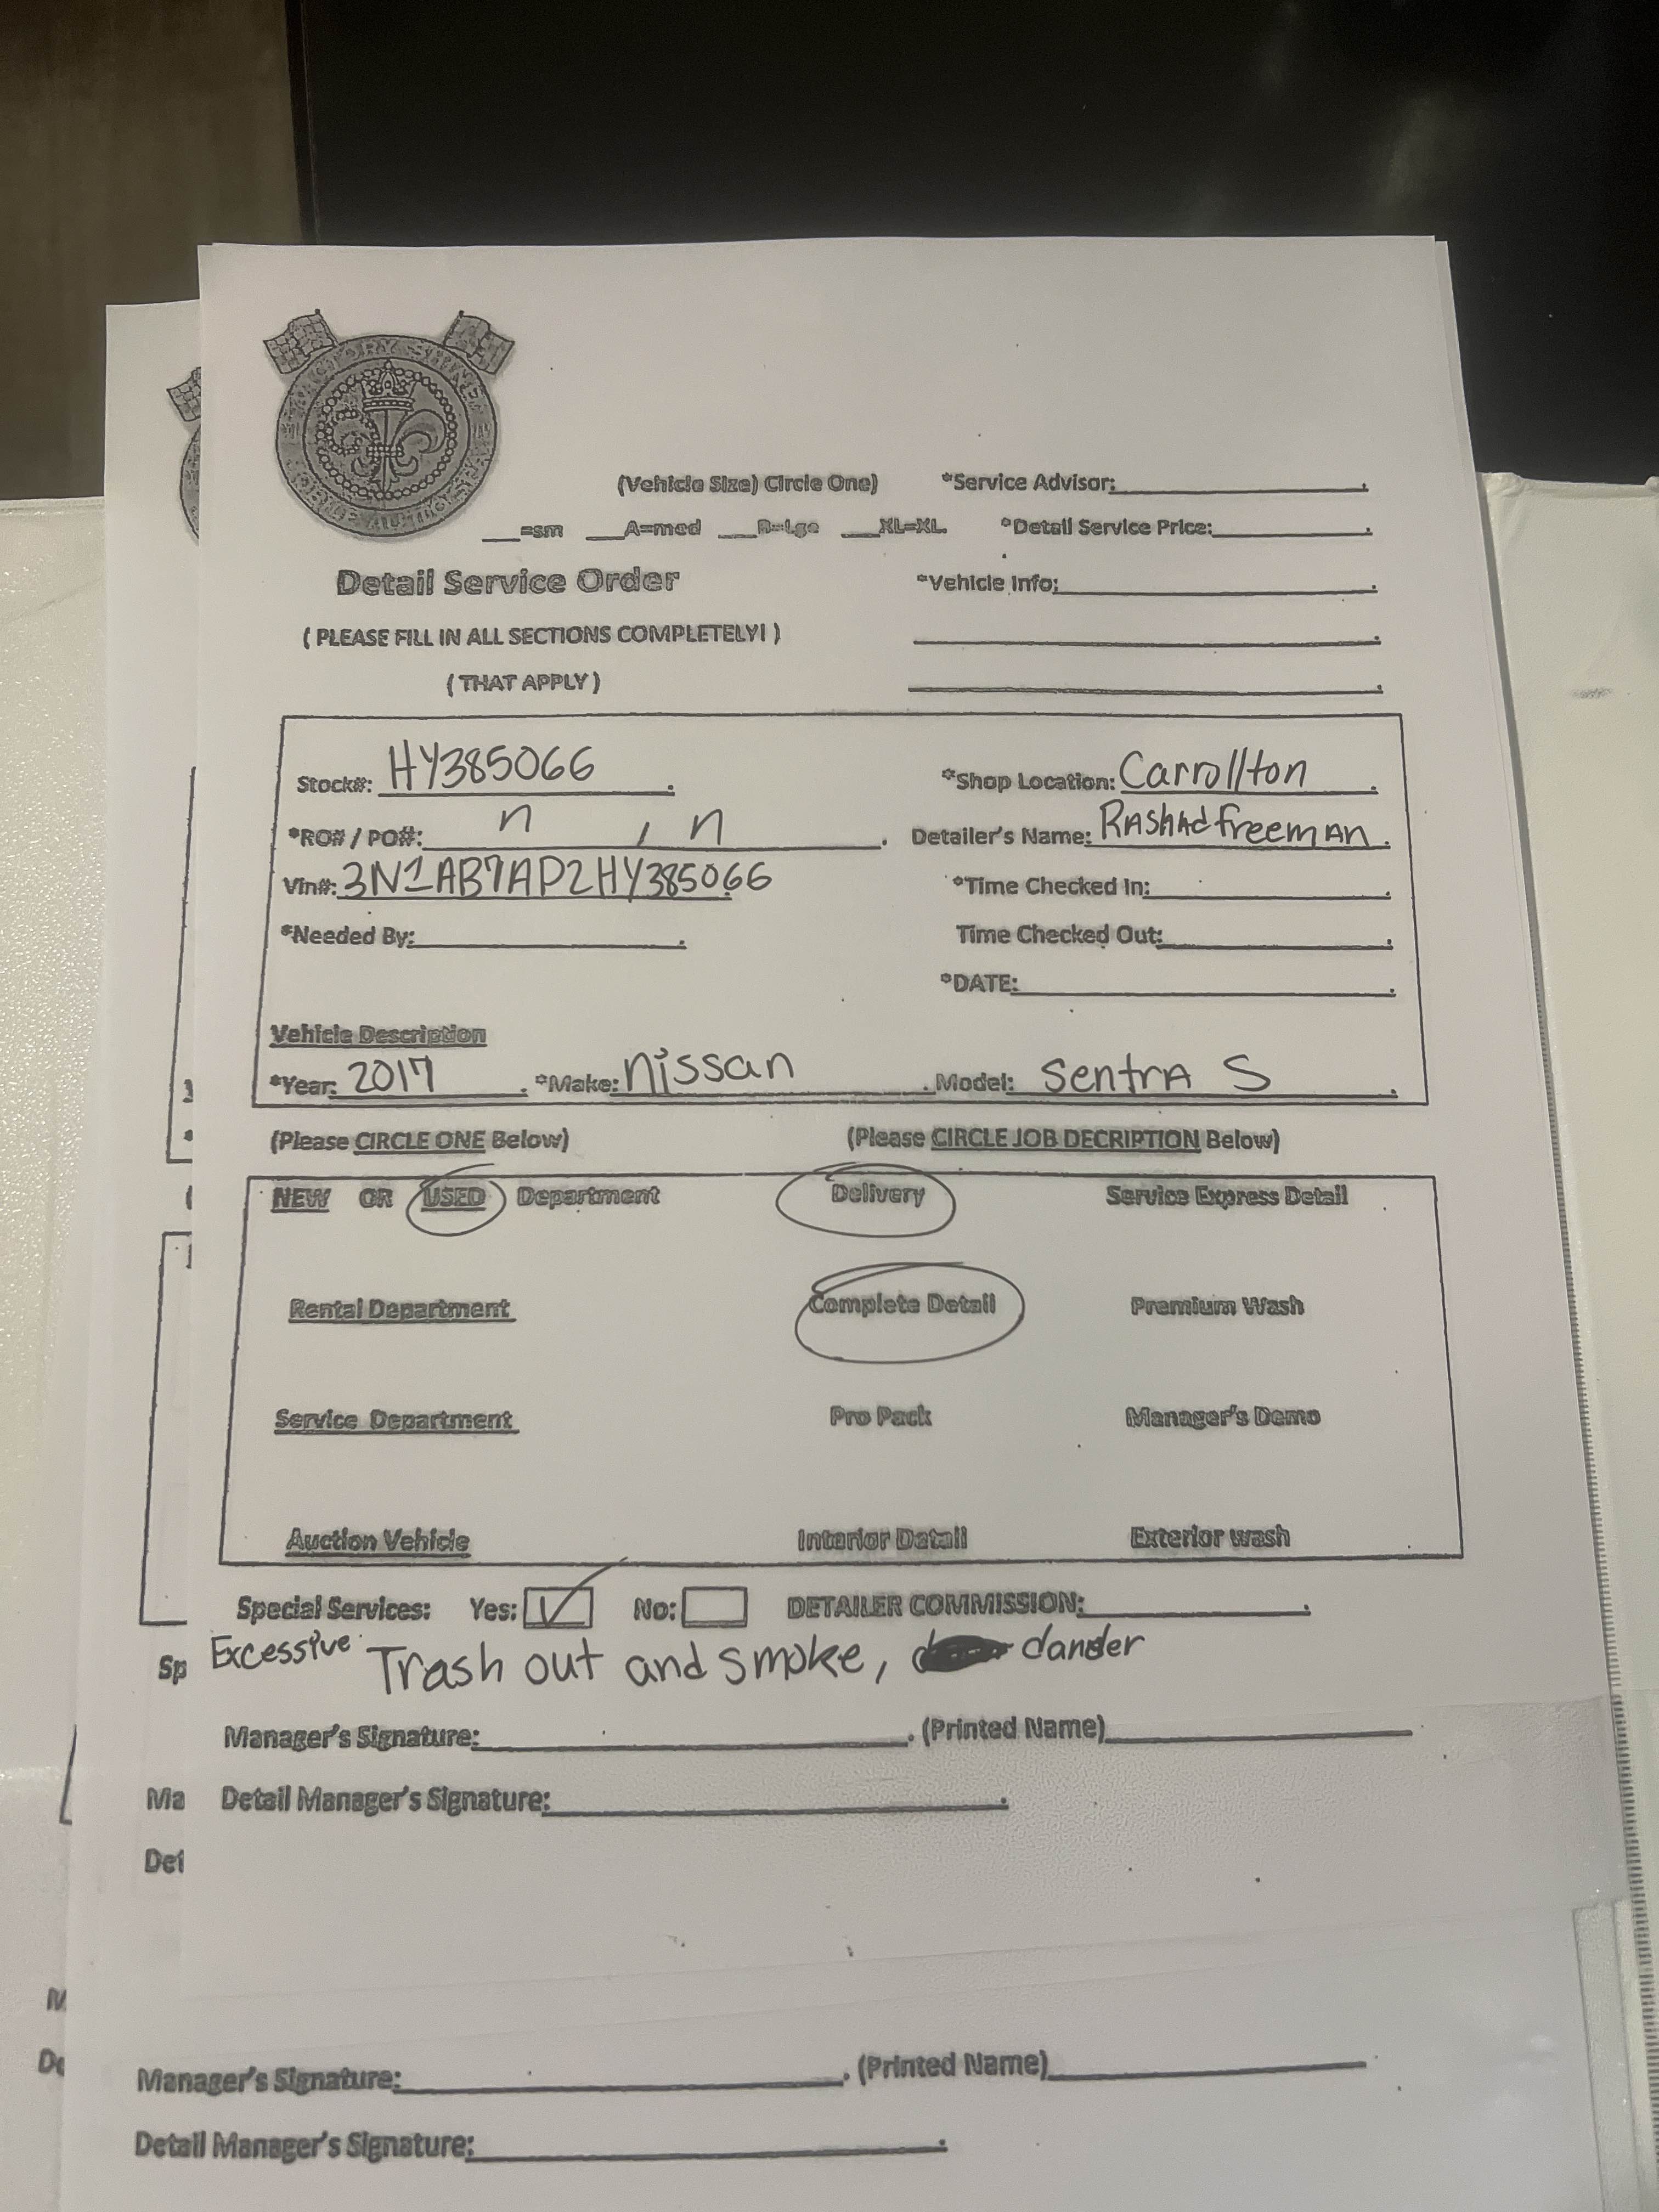 FACTORY SHINE
(Vehicle Size) Circle One) *Service Advisor:
=sm A=med B=Lge XL=XL. *Detail Service Price:
Detail Service Order *Vehicle Info:
( PLEASE FILL IN ALL SECTIONS COMPLETELY! )
( THAT APPLY )
Stock#: HY385066 *Shop Location: Carrollton
*RO# / PO#: n , n Detailer's Name: RAShAd freemAn
Vin#: 3N1AB7AP2HY385066 *Time Checked In:
*Needed By: Time Checked Out:
*DATE:
Vehicle Description
*Year: 2017 *Make: nissan Model: SentrA S
(Please CIRCLE ONE Below) (Please CIRCLE JOB DECRIPTION Below)
NEW OR USED Department Delivery Service Express Detail
Rental Department Complete Detail Premium Wash
Service Department Pro Pack Manager's Demo
Auction Vehicle Interior Detail Exterior wash
Special Services: Yes: No: DETAILER COMMISSION:
Sp Excessive Trash out and smoke, dander
Manager's Signature: (Printed Name)
Ma Detail Manager's Signature:
Det
M
De
Manager's Signature: (Printed Name)
Detail Manager's Signature: